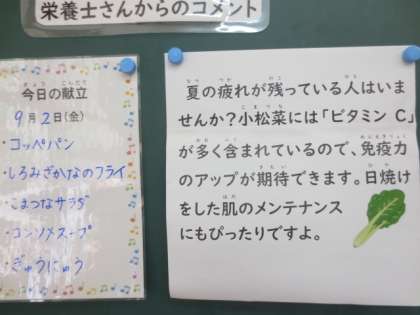 栄養士さんからのコメント
今日の献立
9月2日(金)
・コッペパン
・しろみざかなのフライ
・こまつなサラダ
・コンソメスープ
・ぎゅうにゅう
夏の疲れが残っている人はいま
せんか?小松菜には「ビタミン C」
が多く含まれているので、免疫力
のアップが期待できます。日焼け
をした肌のメンテナンス
にもぴったりですよ。